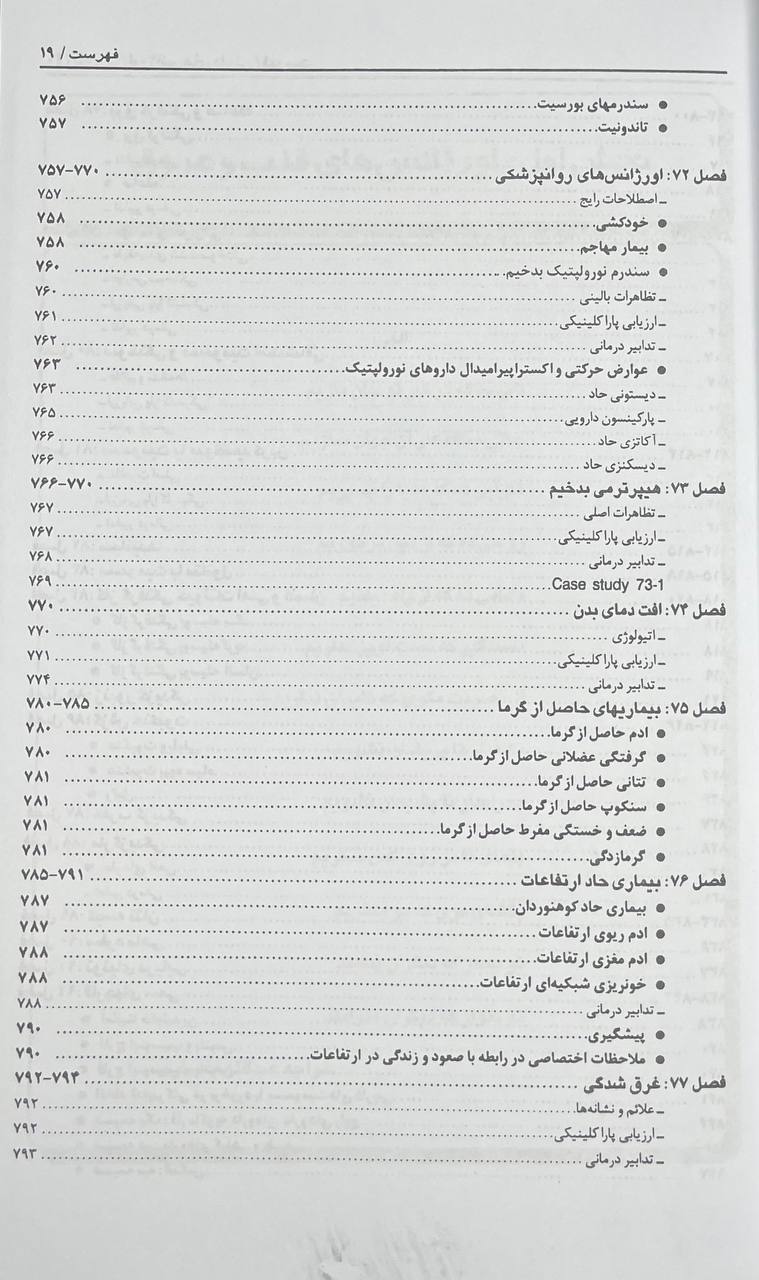 فهرست / ۱۹
● سندرمهای بورسیت ... ۷۵۶
● تاندونیت ... ۷۵۷
فصل ۷۲: اورژانس‌های روانپزشکی ... ۷۵۷-۷۷۰
ـ اصطلاحات رایج ... ۷۵۷
● خودکشی ... ۷۵۸
● بیمار مهاجم ... ۷۵۸
● سندرم نورولپتیک بدخیم ... ۷۶۰
ـ تظاهرات بالینی ... ۷۶۰
ـ ارزیابی پاراکلینیکی ... ۷۶۱
ـ تدابیر درمانی ... ۷۶۲
● عوارض حرکتی و اکستراپیرامیدال داروهای نورولپتیک ... ۷۶۳
ـ دیستونی حاد ... ۷۶۳
ـ پارکینسون دارویی ... ۷۶۵
ـ آکاتزی حاد ... ۷۶۶
ـ دیسکنزی حاد ... ۷۶۶
فصل ۷۳: هیپرترمی بدخیم ... ۷۶۶-۷۷۰
ـ تظاهرات اصلی ... ۷۶۷
ـ ارزیابی پاراکلینیکی ... ۷۶۷
ـ تدابیر درمانی ... ۷۶۸
Case study 73-1 ... ۷۶۹
فصل ۷۴: افت دمای بدن ... ۷۷۰
ـ اتیولوژی ... ۷۷۰
ـ ارزیابی پاراکلینیکی ... ۷۷۱
ـ تدابیر درمانی ... ۷۷۴
فصل ۷۵: بیماریهای حاصل از گرما ... ۷۸۰-۷۸۵
● ادم حاصل از گرما ... ۷۸۰
● گرفتگی عضلانی حاصل از گرما ... ۷۸۰
● تتانی حاصل از گرما ... ۷۸۱
● سنکوپ حاصل از گرما ... ۷۸۱
● ضعف و خستگی مفرط حاصل از گرما ... ۷۸۱
● گرمازدگی ... ۷۸۱
فصل ۷۶: بیماری حاد ارتفاعات ... ۷۸۵-۷۹۱
● بیماری حاد کوهنوردان ... ۷۸۷
● ادم ریوی ارتفاعات ... ۷۸۷
● ادم مغزی ارتفاعات ... ۷۸۸
● خونریزی شبکیه‌ای ارتفاعات ... ۷۸۸
ـ تدابیر درمانی ... ۷۸۸
● پیشگیری ... ۷۹۰
● ملاحظات اختصاصی در رابطه با صعود و زندگی در ارتفاعات ... ۷۹۰
فصل ۷۷: غرق شدگی ... ۷۹۲-۷۹۴
ـ علائم و نشانه‌ها ... ۷۹۲
ـ ارزیابی پاراکلینیکی ... ۷۹۲
ـ تدابیر درمانی ... ۷۹۳